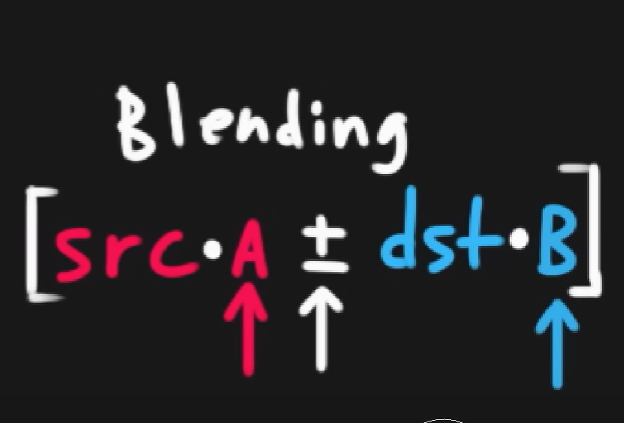 Blending
[src·A ± dst·B]